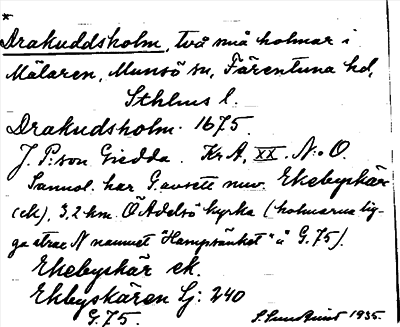 *
Drakuddsholm, två små holmar i
Mälaren, Munsö sn, Färentuna hd,
Sthlms l.
Drakudsholm. 1675.
J. P:son Giedda. Kr A, XX. N:o O.
Sannol. har G. avsett nuv. Ekebyskär
(ek), 3,2 km. Ö Adelsö kyrka (holmarna lig-
ga strax N namnet "Hampsänket" å G. 75).
Ekebyskär ek.
Ekbyskären Sj: 240
G. 75. S. Sundquist 1935.